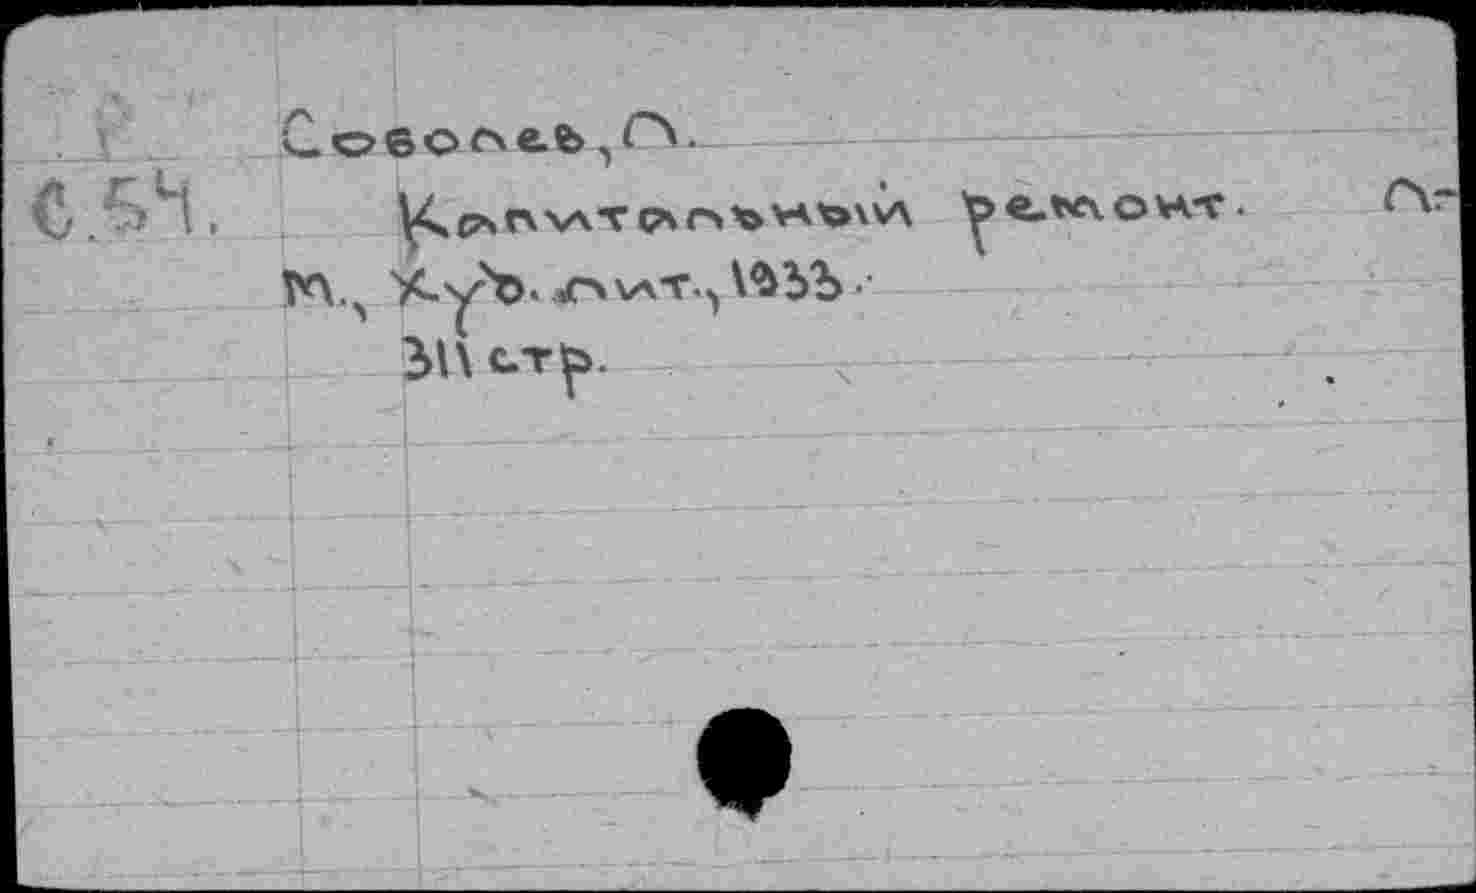 Р
С.54.
Соболев, Л.
Капитальный ремонт. Л.-
М., Худ. лит., 1933.
311 стр.